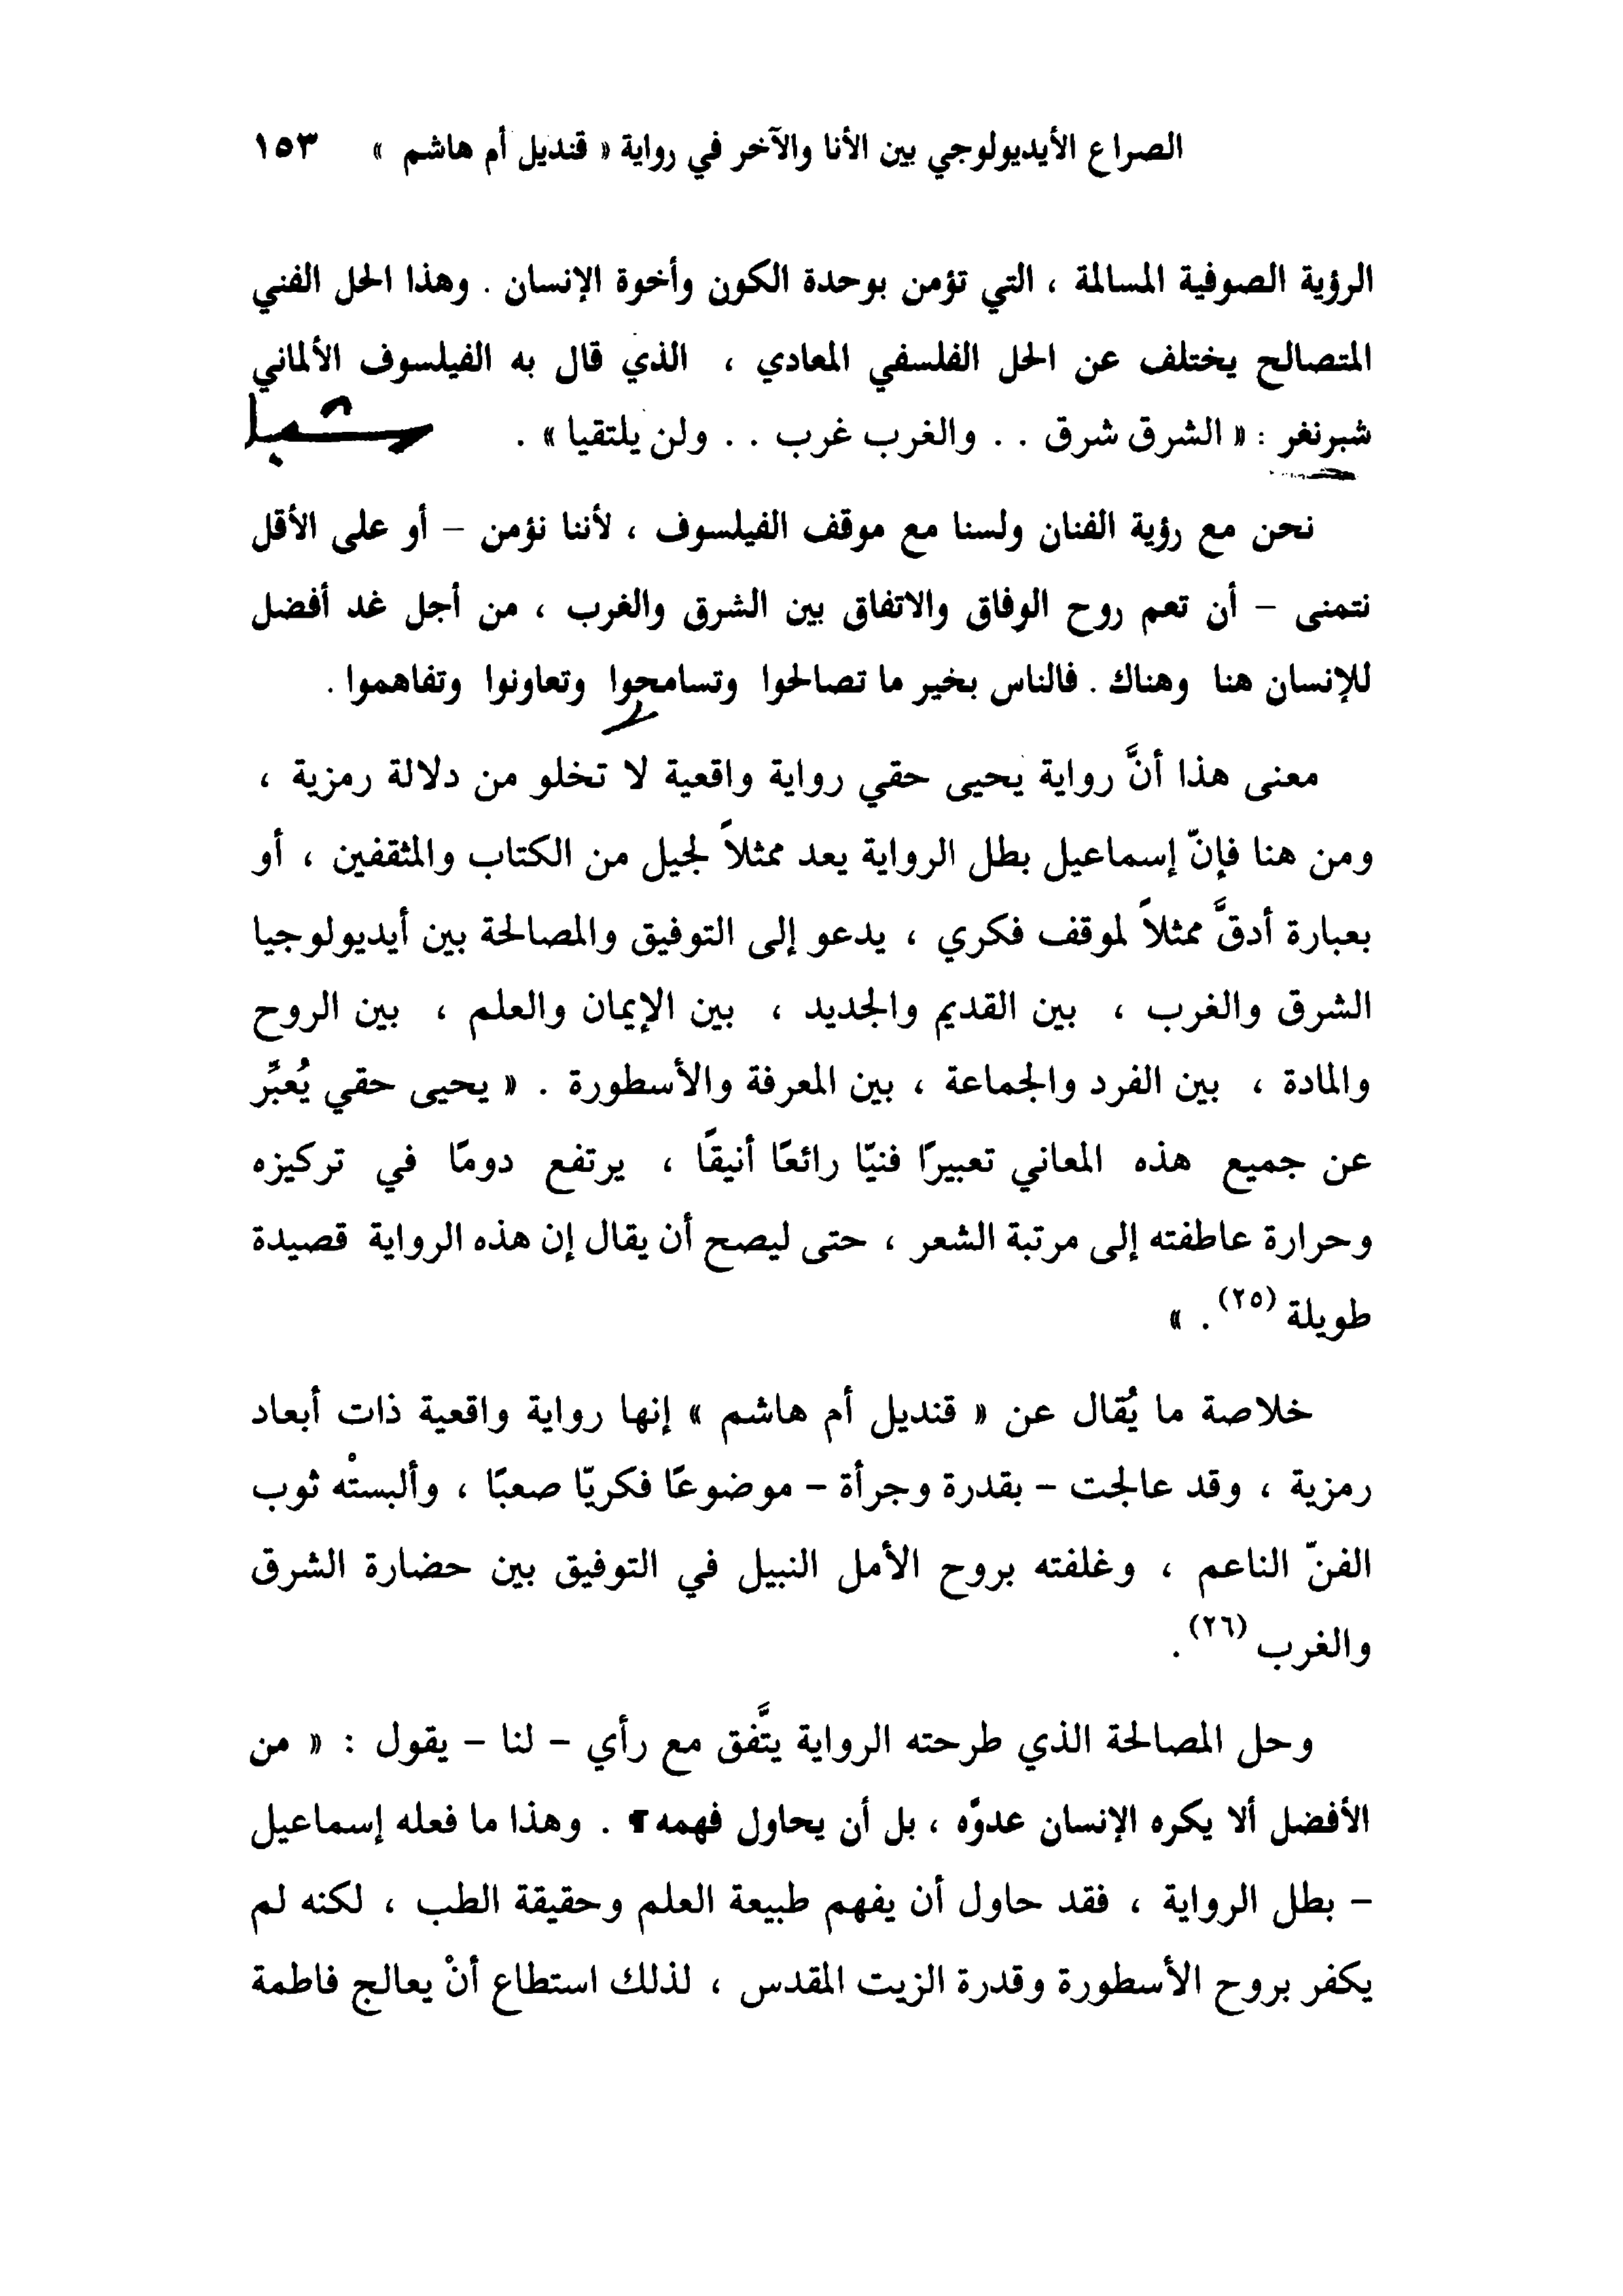 الصراع الأيديولوجي بين الأنا والآخر في رواية « قنديل أم هاشم » ١٥٣
الرؤية الصوفية المسالمة ، التي تؤمن بوحدة الكون وأخوة الإنسان . وهذا الحل الفني
المتصالح يختلف عن الحل الفلسفي المعادي ، الذي قال به الفيلسوف الألماني
شبرنغر : « الشرق شرق . . والغرب غرب . . ولن يلتقيا » .
نحن مع رؤية الفنان ولسنا مع موقف الفيلسوف ، لأننا نؤمن – أو على الأقل
نتمنى – أن تعم روح الوفاق والاتفاق بين الشرق والغرب ، من أجل غد أفضل
للإنسان هنا وهناك . فالناس بخير ما تصالحوا وتسامحوا وتعاونوا وتفاهموا .
معنى هذا أنَّ رواية يحيى حقي رواية واقعية لا تخلو من دلالة رمزية ،
ومن هنا فإنّ إسماعيل بطل الرواية يعد ممثلاً لجيل من الكتاب والمثقفين ، أو
بعبارة أدقَّ ممثلاً لموقف فكري ، يدعو إلى التوفيق والمصالحة بين أيديولوجيا
الشرق والغرب ، بين القديم والجديد ، بين الإيمان والعلم ، بين الروح
والمادة ، بين الفرد والجماعة ، بين المعرفة والأسطورة . « يحيى حقي يُعبِّر
عن جميع هذه المعاني تعبيرًا فنيّا رائعًا أنيقًا ، يرتفع دومًا في تركيزه
وحرارة عاطفته إلى مرتبة الشعر ، حتى ليصح أن يقال إن هذه الرواية قصيدة
طويلة (٢٥) . »
خلاصة ما يُقال عن « قنديل أم هاشم » إنها رواية واقعية ذات أبعاد
رمزية ، وقد عالجت – بقدرة وجرأة – موضوعًا فكريّا صعبًا ، وألبستْه ثوب
الفنّ الناعم ، وغلفته بروح الأمل النبيل في التوفيق بين حضارة الشرق
والغرب (٢٦) .
وحل المصالحة الذي طرحته الرواية يتَّفق مع رأي – لنا – يقول : « من
الأفضل ألا يكره الإنسان عدوّه ، بل أن يحاول فهمه » . وهذا ما فعله إسماعيل
– بطل الرواية ، فقد حاول أن يفهم طبيعة العلم وحقيقة الطب ، لكنه لم
يكفر بروح الأسطورة وقدرة الزيت المقدس ، لذلك استطاع أنْ يعالج فاطمة